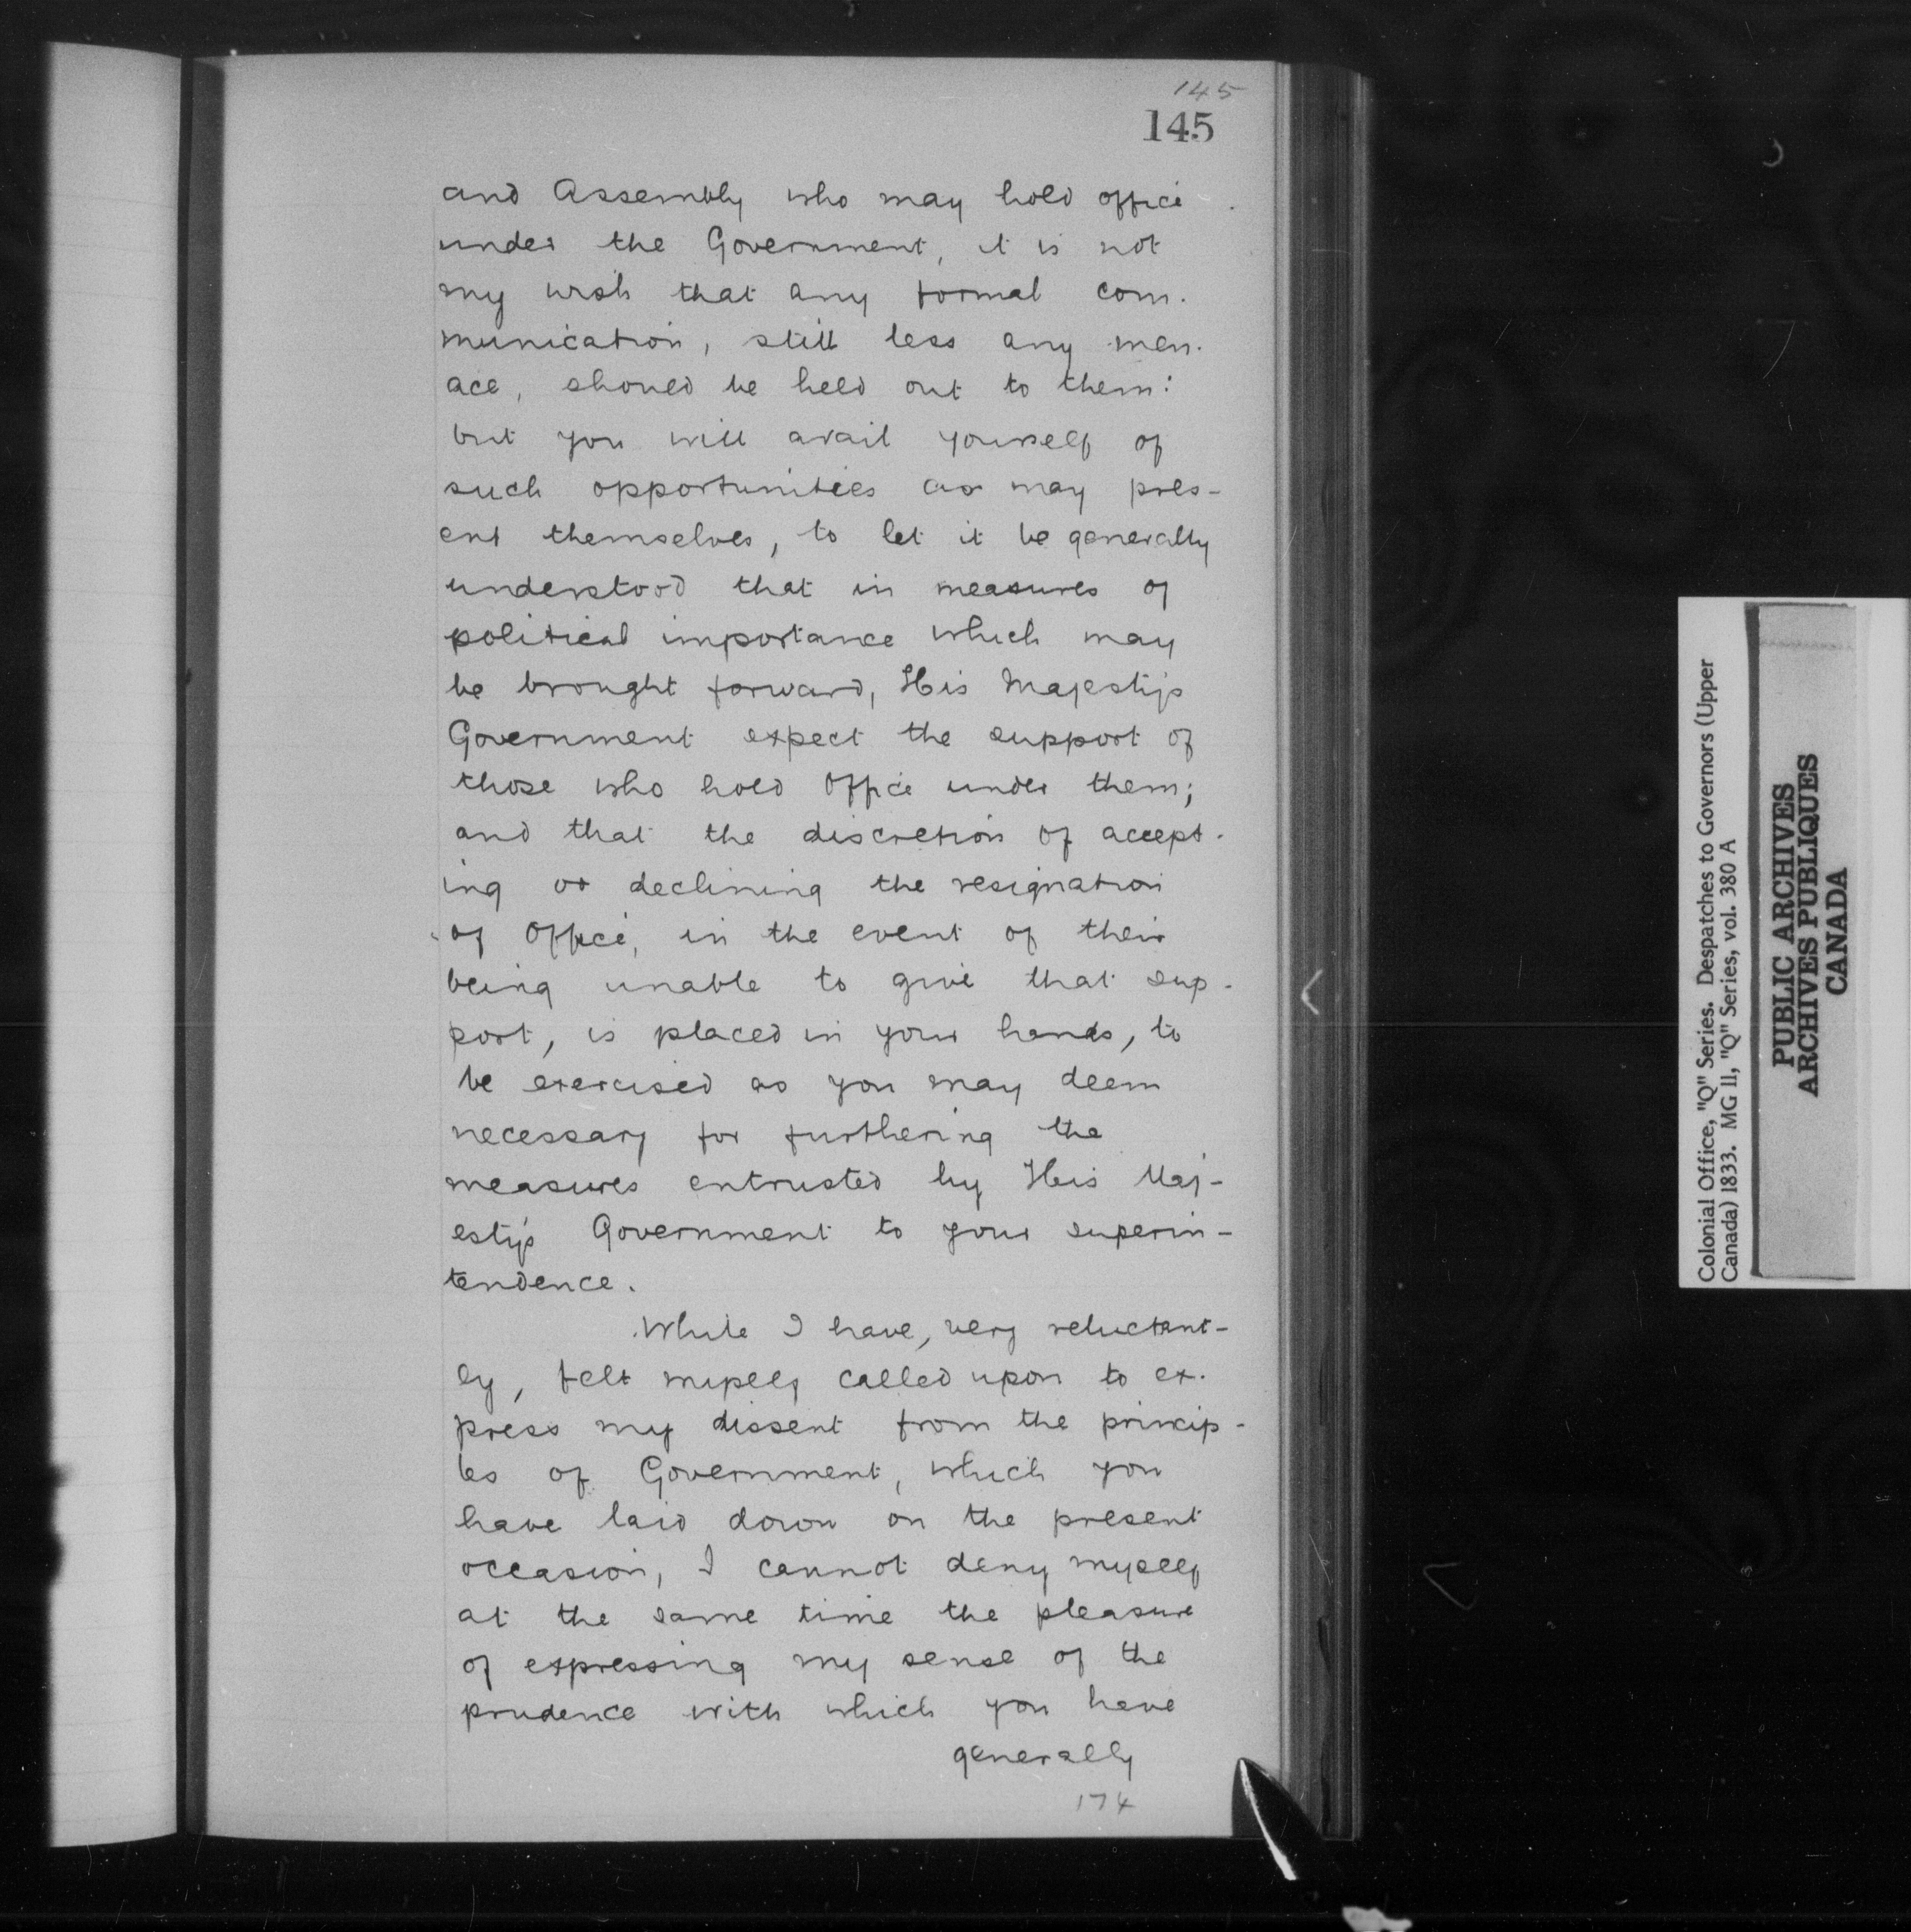 145
145
and Assembly who may hold office
under the Government, it is not
my wish that any formal com-
munication, still less any men-
ace, should be held out to them:
but you will avail yourself of
such opportunities as may pres-
ent themselves, to let it be generally
understood that in measures of
political importance which may
be brought forward, His Majesty's
Government expect the support of
those who hold Office under them;
and that the discretion of accept-
ing or declining the resignation
of Office, in the event of their
being unable to give that sup-
port, is placed in your hands, to
be exercised as you may deem
necessary for furthering the
measures entrusted by His Maj-
esty's Government to your superin-
tendence.
While I have, very reluctant-
ly, felt myself called upon to ex-
press my dissent from the princip-
les of Government, which you
have laid down on the present
occasion, I cannot deny myself
at the same time the pleasure
of expressing my sense of the
prudence with which you have
generally
174
Colonial Office, "Q" Series. Despatches to Governors (Upper
Canada) 1833. MG 11, "Q" Series, vol. 380 A
PUBLIC ARCHIVES
ARCHIVES PUBLIQUES
CANADA